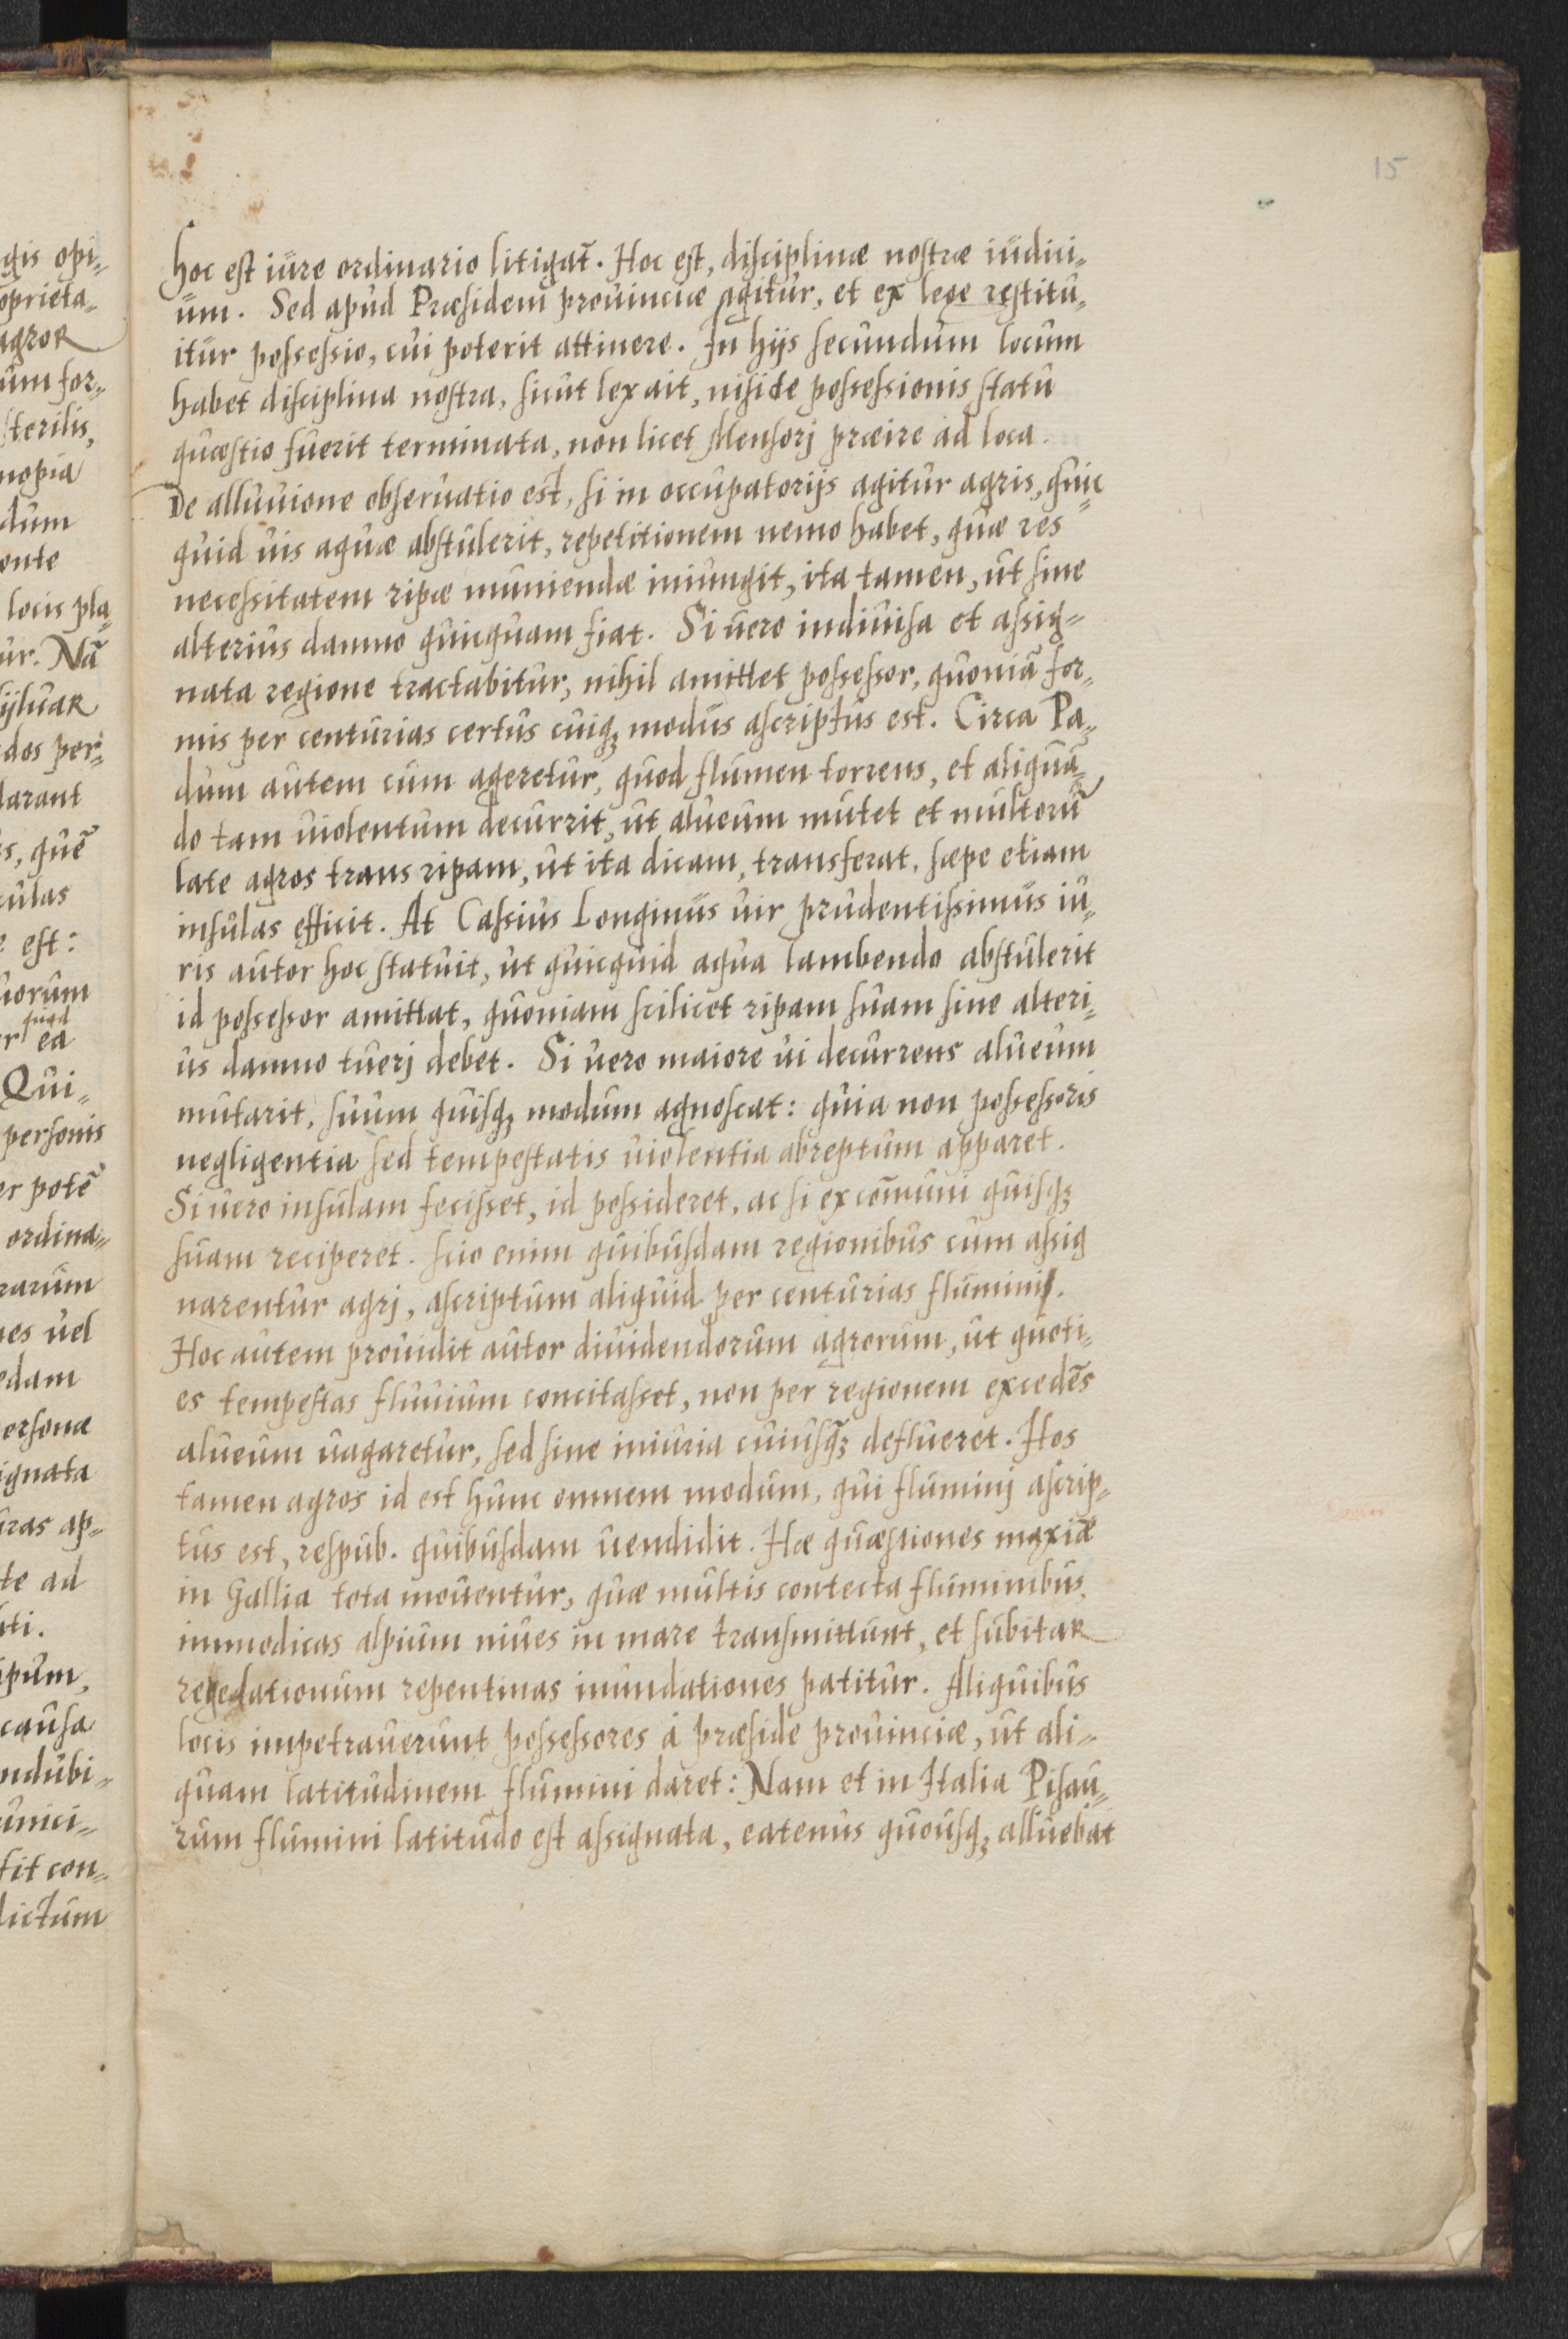 15
hoc est iure ordinario litigat̄. Hoc est, disciplinæ nostræ iudici„
um. Sed apud Præsidem prouinciæ agitur, et ex lege restitu„
itur possessio, cui poterit attinere. In hijs secundum locum
habet disciplina nostra, sicut lex ait, niside possessionis statu
quæstio fuerit terminata, non licet Mensorj præire ad loca.
De alluuione obseruatio est, si in occupatorijs agitur agris, quic„
quid uis aquæ abstulerit, repetitionem nemo habet, quæ res
necessitatem ripæ muniendæ iniungit, ita tamen, ut sine
alterius damno quicquam fiat. Si uero indiuisa et assig„
nata regione tractabitur, nihil amittet possessor, quoniā for„
mis per centurias certus cuiqꝫ modus ascriptus est. Circa Pa„
dum autem cum ageretur, quod flumen torrens, et aliquā„
do tam uiolentum decurrit, ut alueum mutet et multorū
late agros trans ripam, ut ita dicam, transferat, sæpe etiam
insulas efficit. At Cassius Longinus uir prudentissimus iu„
ris autor hoc statuit, ut quicquid aqua lambendo abstulerit
id possessor amittat, quoniam scilicet ripam suam sine alteri„
us damno tuerj debet. Si uero maiore ui decurrens alueum
mutarit, suum quisqꝫ modum agnoscat: quia non possessoris
negligentia sed tempestatis uiolentia abreptum apparet.
Si uero insulam fecisset, id possideret, ac si ex com̄uni quisqꝫ
suam reciperet. Scio enim quibusdam regionibus cum assig
narentur agrj, ascriptum aliquid per centurias flumini.
Hoc autem prouidit autor diuidendorum agrorum, ut quoti„
es tempestas fluuium concitasset, non per regionem excedēs
alueum uagaretur, sed sine iniuria cuiusqꝫ deflueret. Hos
tamen agros id est hunc omnem modum, qui fluminj ascrip„
tus est, respub. quibusdam uendidit. Hæ quæstiones maxīæ
in Gallia tota mouentur, quæ multis contecta fluminibus,
immodicas alpium niues in mare transmittunt, et subitaꝶ
regelationum repentinas inundationes patitur. Aliquibus
locis impetrauerunt possessores á præside prouinciæ, ut ali„
quam latitudinem flumini daret: Nam et in Italia Pisau„
rum flumini latitudo est assignata, eatenus quousqꝫ alluebat